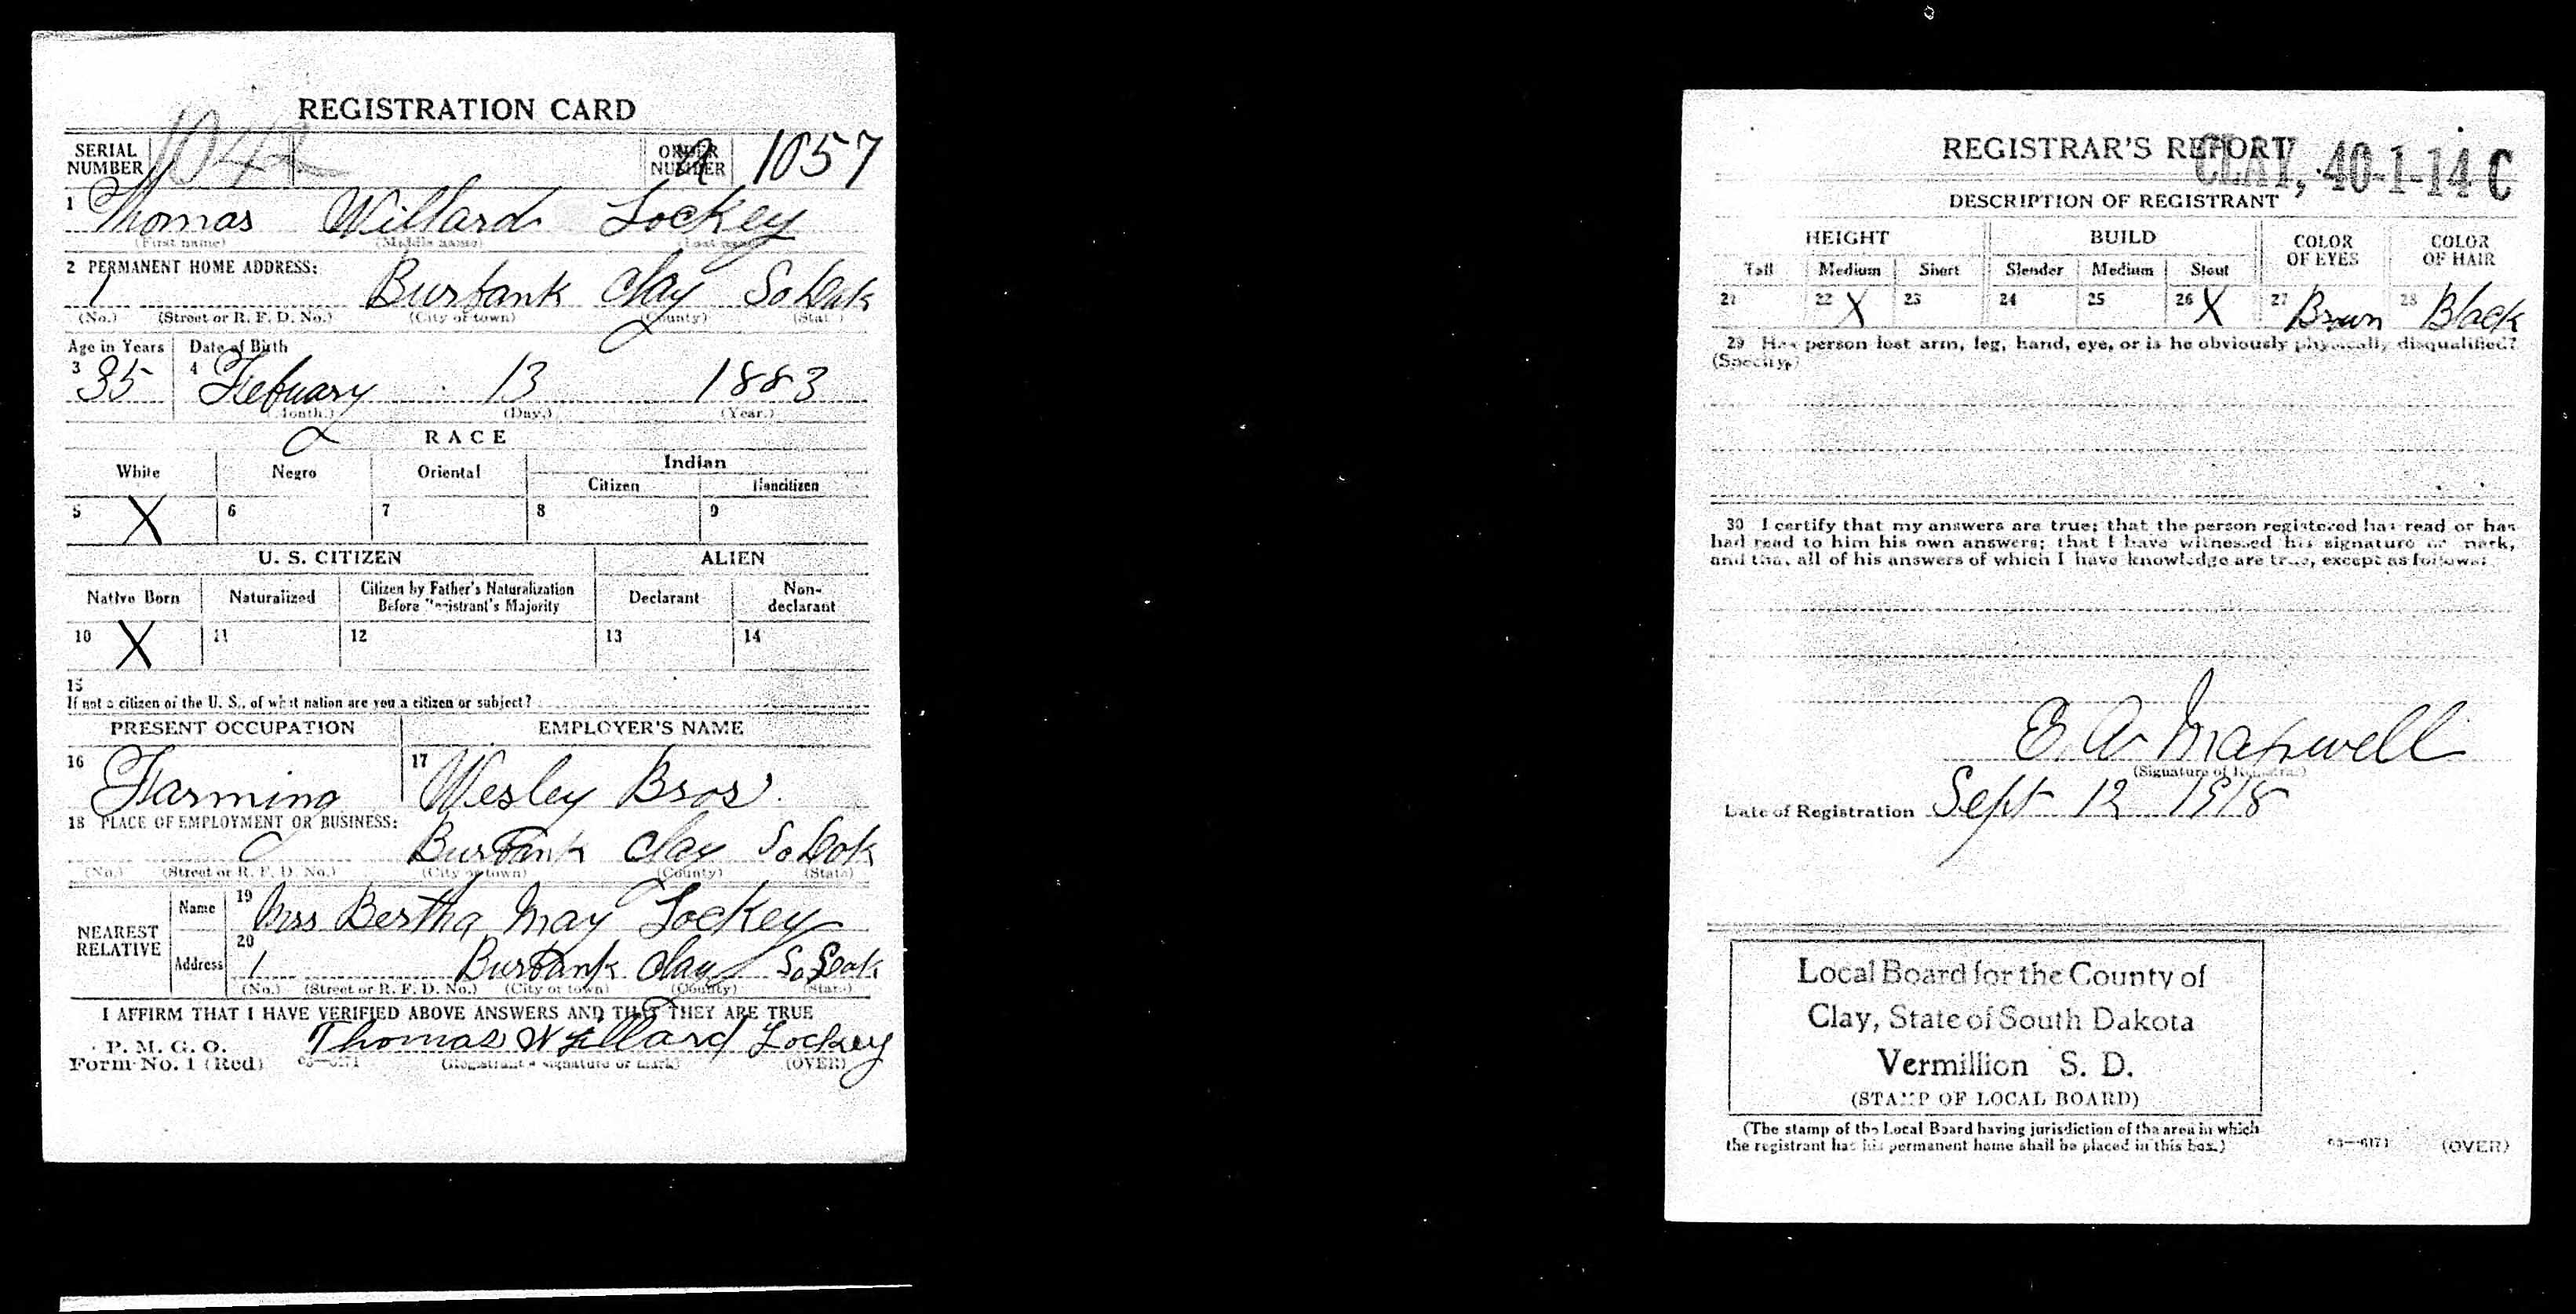 REGISTRATION CARD
SERIAL NUMBER 1042 ORDER NUMBER A 1057
1 Thomas Willard Lockey
(First name) (Middle name) (Last name)
2 PERMANENT HOME ADDRESS:
1 Burbank Clay So Dak
(No.) (Street or R. F. D. No.) (City or town) (County) (State)
Age in Years Date of Birth
3 35 4 Febuary 13 1883
(Month.) (Day.) (Year.)
RACE
White Negro Oriental Indian
Citizen Noncitizen
5 X 6 7 8 9
U. S. CITIZEN ALIEN
Native Born Naturalized Citizen by Father's Naturalization Before Registrant's Majority Declarant Non-declarant
10 X 11 12 13 14
15
If not a citizen of the U. S., of what nation are you a citizen or subject?
PRESENT OCCUPATION EMPLOYER'S NAME
16 Farming 17 Wesley Bros.
18 PLACE OF EMPLOYMENT OR BUSINESS:
Burbank Clay So Dak
(No.) (Street or R. F. D. No.) (City or town) (County) (State)
NEAREST RELATIVE
Name 19 Mrs Bertha May Lockey
Address 20 1 Burbank Clay So Dak
(No.) (Street or R. F. D. No.) (City or town) (County) (State)
I AFFIRM THAT I HAVE VERIFIED ABOVE ANSWERS AND THAT THEY ARE TRUE
P. M. G. O.
Form No. 1 (Red) 03—6171 Thomas Willard Lockey
(Registrant's signature or mark) (OVER)
REGISTRAR'S REPORT
CLAY, 40-1-14 C
DESCRIPTION OF REGISTRANT
HEIGHT BUILD COLOR OF EYES COLOR OF HAIR
Tall Medium Short Slender Medium Stout
21 22 X 23 24 25 26 X 27 Brown 28 Black
29 Has person lost arm, leg, hand, eye, or is he obviously physically disqualified?
(Specify.)
30 I certify that my answers are true; that the person registered has read or has
had read to him his own answers; that I have witnessed his signature or mark,
and that all of his answers of which I have knowledge are true, except as follows:
E. A. Maxwell
(Signature of Registrar)
Date of Registration Sept 12 1918
Local Board for the County of
Clay, State of South Dakota
Vermillion S. D.
(STAMP OF LOCAL BOARD)
(The stamp of the Local Board having jurisdiction of the area in which
the registrant has his permanent home shall be placed in this box.)
03—6171 (OVER)